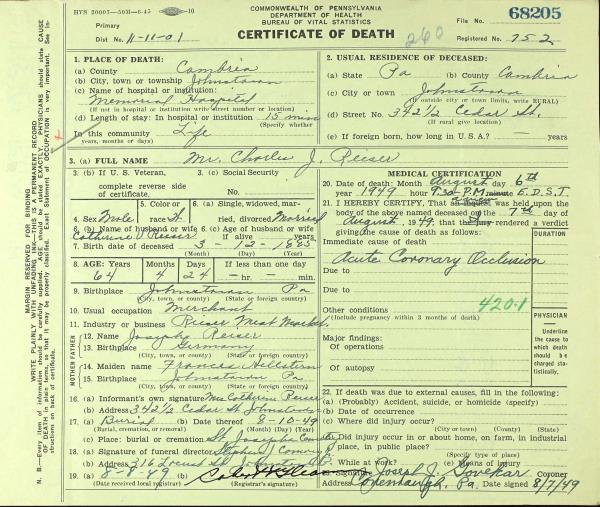 HVS 20007—50M—6-45 10
COMMONWEALTH OF PENNSYLVANIA
DEPARTMENT OF HEALTH
BUREAU OF VITAL STATISTICS
CERTIFICATE OF DEATH
File No. 68205
Primary
Dist No. 11-11-01
260
Registered No. 752
1. PLACE OF DEATH:
(a) County Cambria
(b) City, town or township Johnstown
(c) Name of hospital or institution:
Memorial Hospital
(If not in hospital or institution write street number or location)
(d) Length of stay: In hospital or institution 15 min
(Specify whether
In this community Life
years, months or days)
2. USUAL RESIDENCE OF DECEASED:
(a) State Pa (b) County Cambria
(c) City or town Johnstown
(If outside city or town limits, write RURAL)
(d) Street No. 342½ Cedar St.
(If rural give location)
(e) If foreign born, how long in U. S. A.? — years
3. (a) FULL NAME Mr. Charles J. Reiser
3. (b) If U. S. Veteran,
complete reverse side
of certificate.
3. (c) Social Security
No.
4. Sex Male
5. Color or
race W.
6. (a) Single, widowed, mar-
ried, divorced Married
6. (b) Name of husband or wife
Catherine V. Reiser
6. (c) Age of husband or wife if
alive years,
7. Birth date of deceased 3 - 12 - 1885
(Month) (Day) (Year)
8. AGE: Years Months Days If less than one day
64 4 24 — hr. — min.
9. Birthplace Johnstown Pa
(City, town, or county) (State or foreign country)
10. Usual occupation Merchant
11. Industry or business Reiser Meat Market
FATHER
12. Name Joseph Reiser
13. Birthplace Germany
(City, town, or county) (State or foreign country)
MOTHER
14. Maiden name Frances
15. Birthplace Johnstown Pa
(City, town, or county) (State or foreign country)
16. (a) Informant's own signature Mrs Catherine Reiser
(b) Address 342½ Cedar St Johnstown
17. (a) Burial (b) Date thereof 8-10-49
(Burial, cremation, or removal) (Month) (Day) (Year)
(c) Place: burial or cremation St Josephs
18. (a) Signature of funeral director Stephen J
(b) Address 216 Locust St Johnstown
19. (a) 8-8-49 (b)
(Date received local registrar) (Registrar's signature)
MEDICAL CERTIFICATION
20. Date of Death: Month August day 6th
year 1949 hour P.M. minute E.D.S.T.
21. I HEREBY CERTIFY, That was held upon
the body of the above named deceased on the 7th day of
August, 1949, that the Jury rendered a verdict
giving the cause of death as follows:
DURATION
Immediate cause of death
Acute Coronary Occlusion
Due to
Due to
420.1
Other conditions
(Include pregnancy within 3 months of death)
PHYSICIAN
Underline
the cause
to which
death
should be
charged sta-
tistically.
Major findings:
Of operations
Of autopsy
22. If death was due to external causes, fill in the following:
(a) (Probably) Accident, suicide, or homicide (specify)
(b) Date of occurrence
(c) Where did injury occur?
(City or town) (County) (State)
(d) Did injury occur in or about home, on farm, in industrial
place, in public place?
(Specify type of place)
While at work? (e) Means of injury
Signed Joseph J. Govekar Coroner
Address Conemaugh, Pa. Date signed 8/7/49
MARGIN RESERVED FOR BINDING
WRITE PLAINLY WITH UNFADING INK—THIS IS A PERMANENT RECORD
N. B.—Every item of information should be carefully supplied. AGE should be stated EXACTLY. PHYSICIANS should state CAUSE
OF DEATH in plain terms, so that it may be properly classified. Exact Statement of OCCUPATION is very important. See in-
structions on back of certificate.